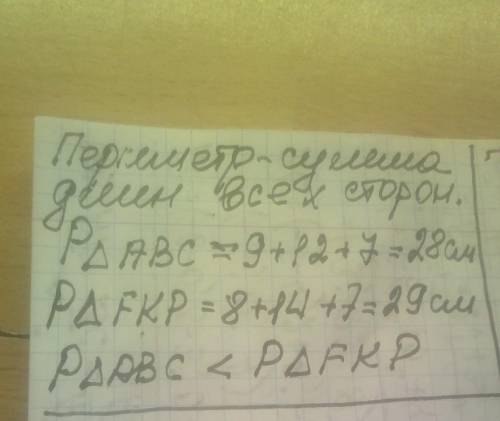 Периметр-сумма
длин всех сторон.
P△ABC = 9+12+7=28см
P△FKP = 8+14+7=29см
P△ABC < P△FKP